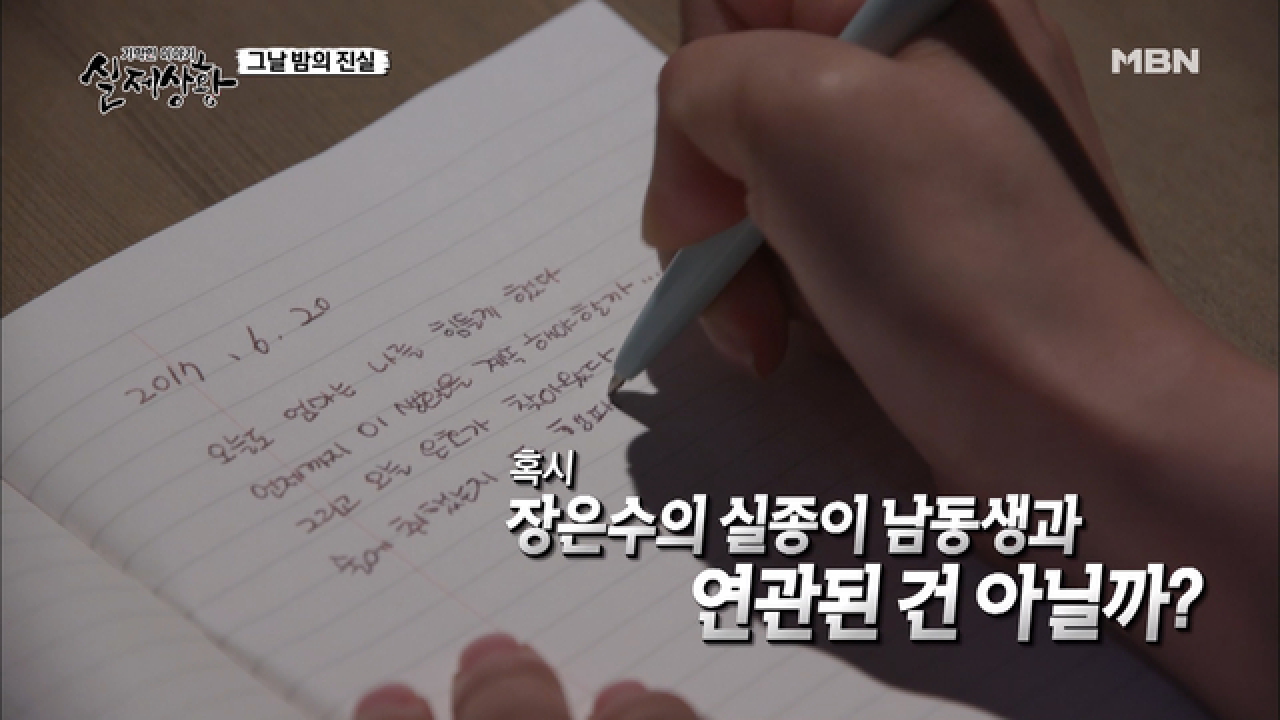 기막힌 이야기
실제상황
그날 밤의 진실
MBN
2017.6.20
오늘도 엄마는 나를 힘들게 했다
언제까지 이 생활을 계속 해야 할까...
그리고 오늘 은준가 찾아왔다
술에 취했는지 횡포
혹시
장은수의 실종이 남동생과
연관된 건 아닐까?